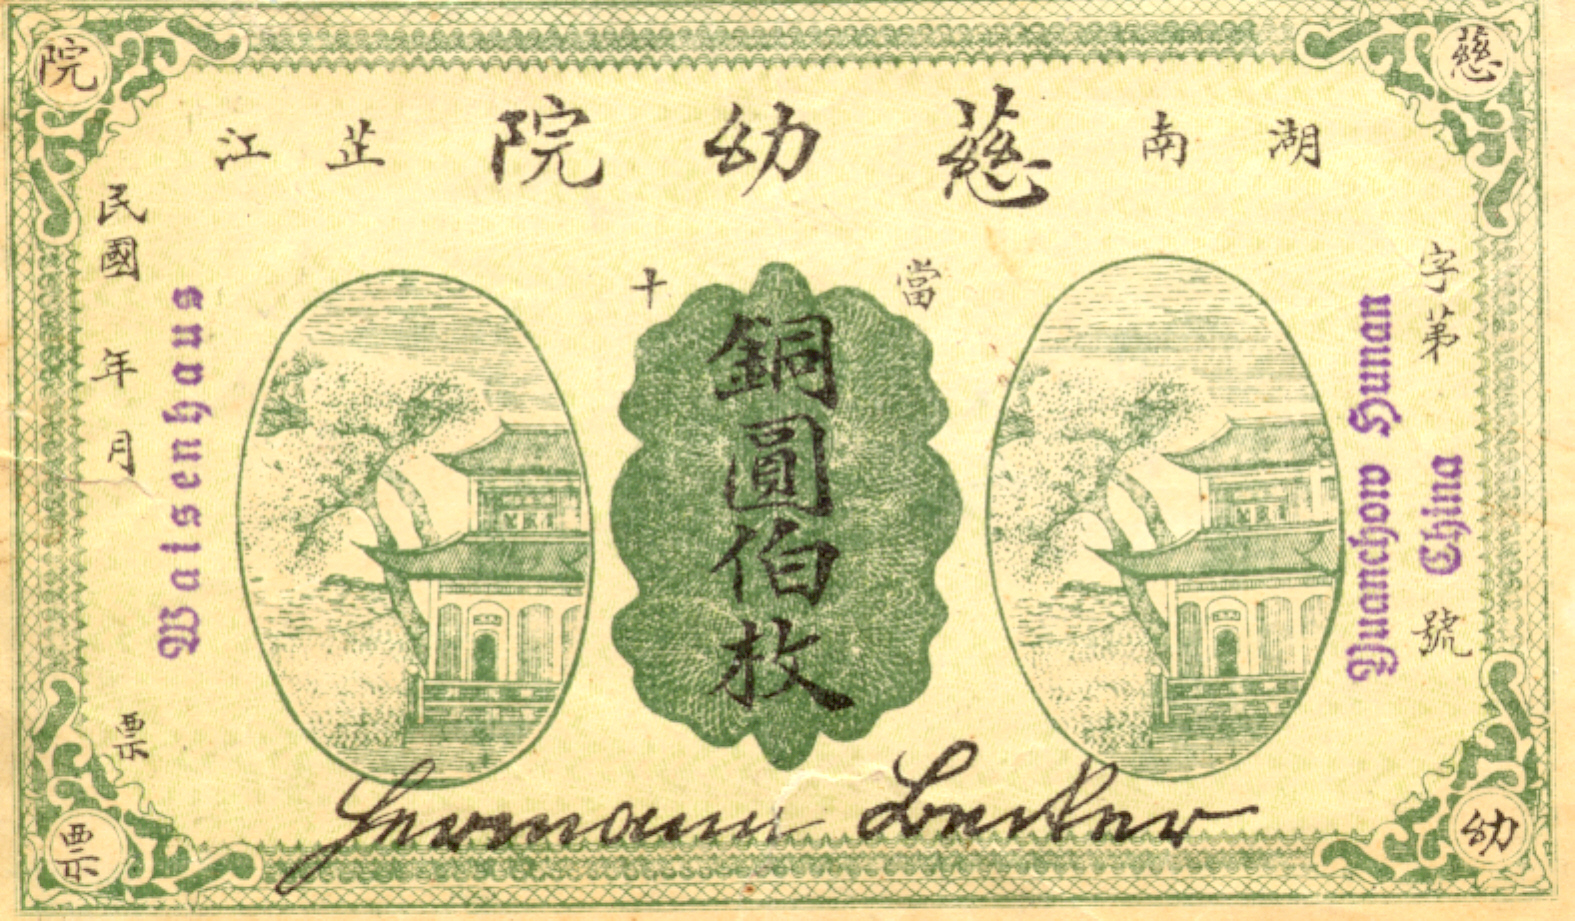 湖南慈幼院芷江
當十
銅圓伯枚
字第 號
民國 年 月 票
慈
幼
院
票
Waisenhaus
Yuanchow Hunan
China
Hermann Becker